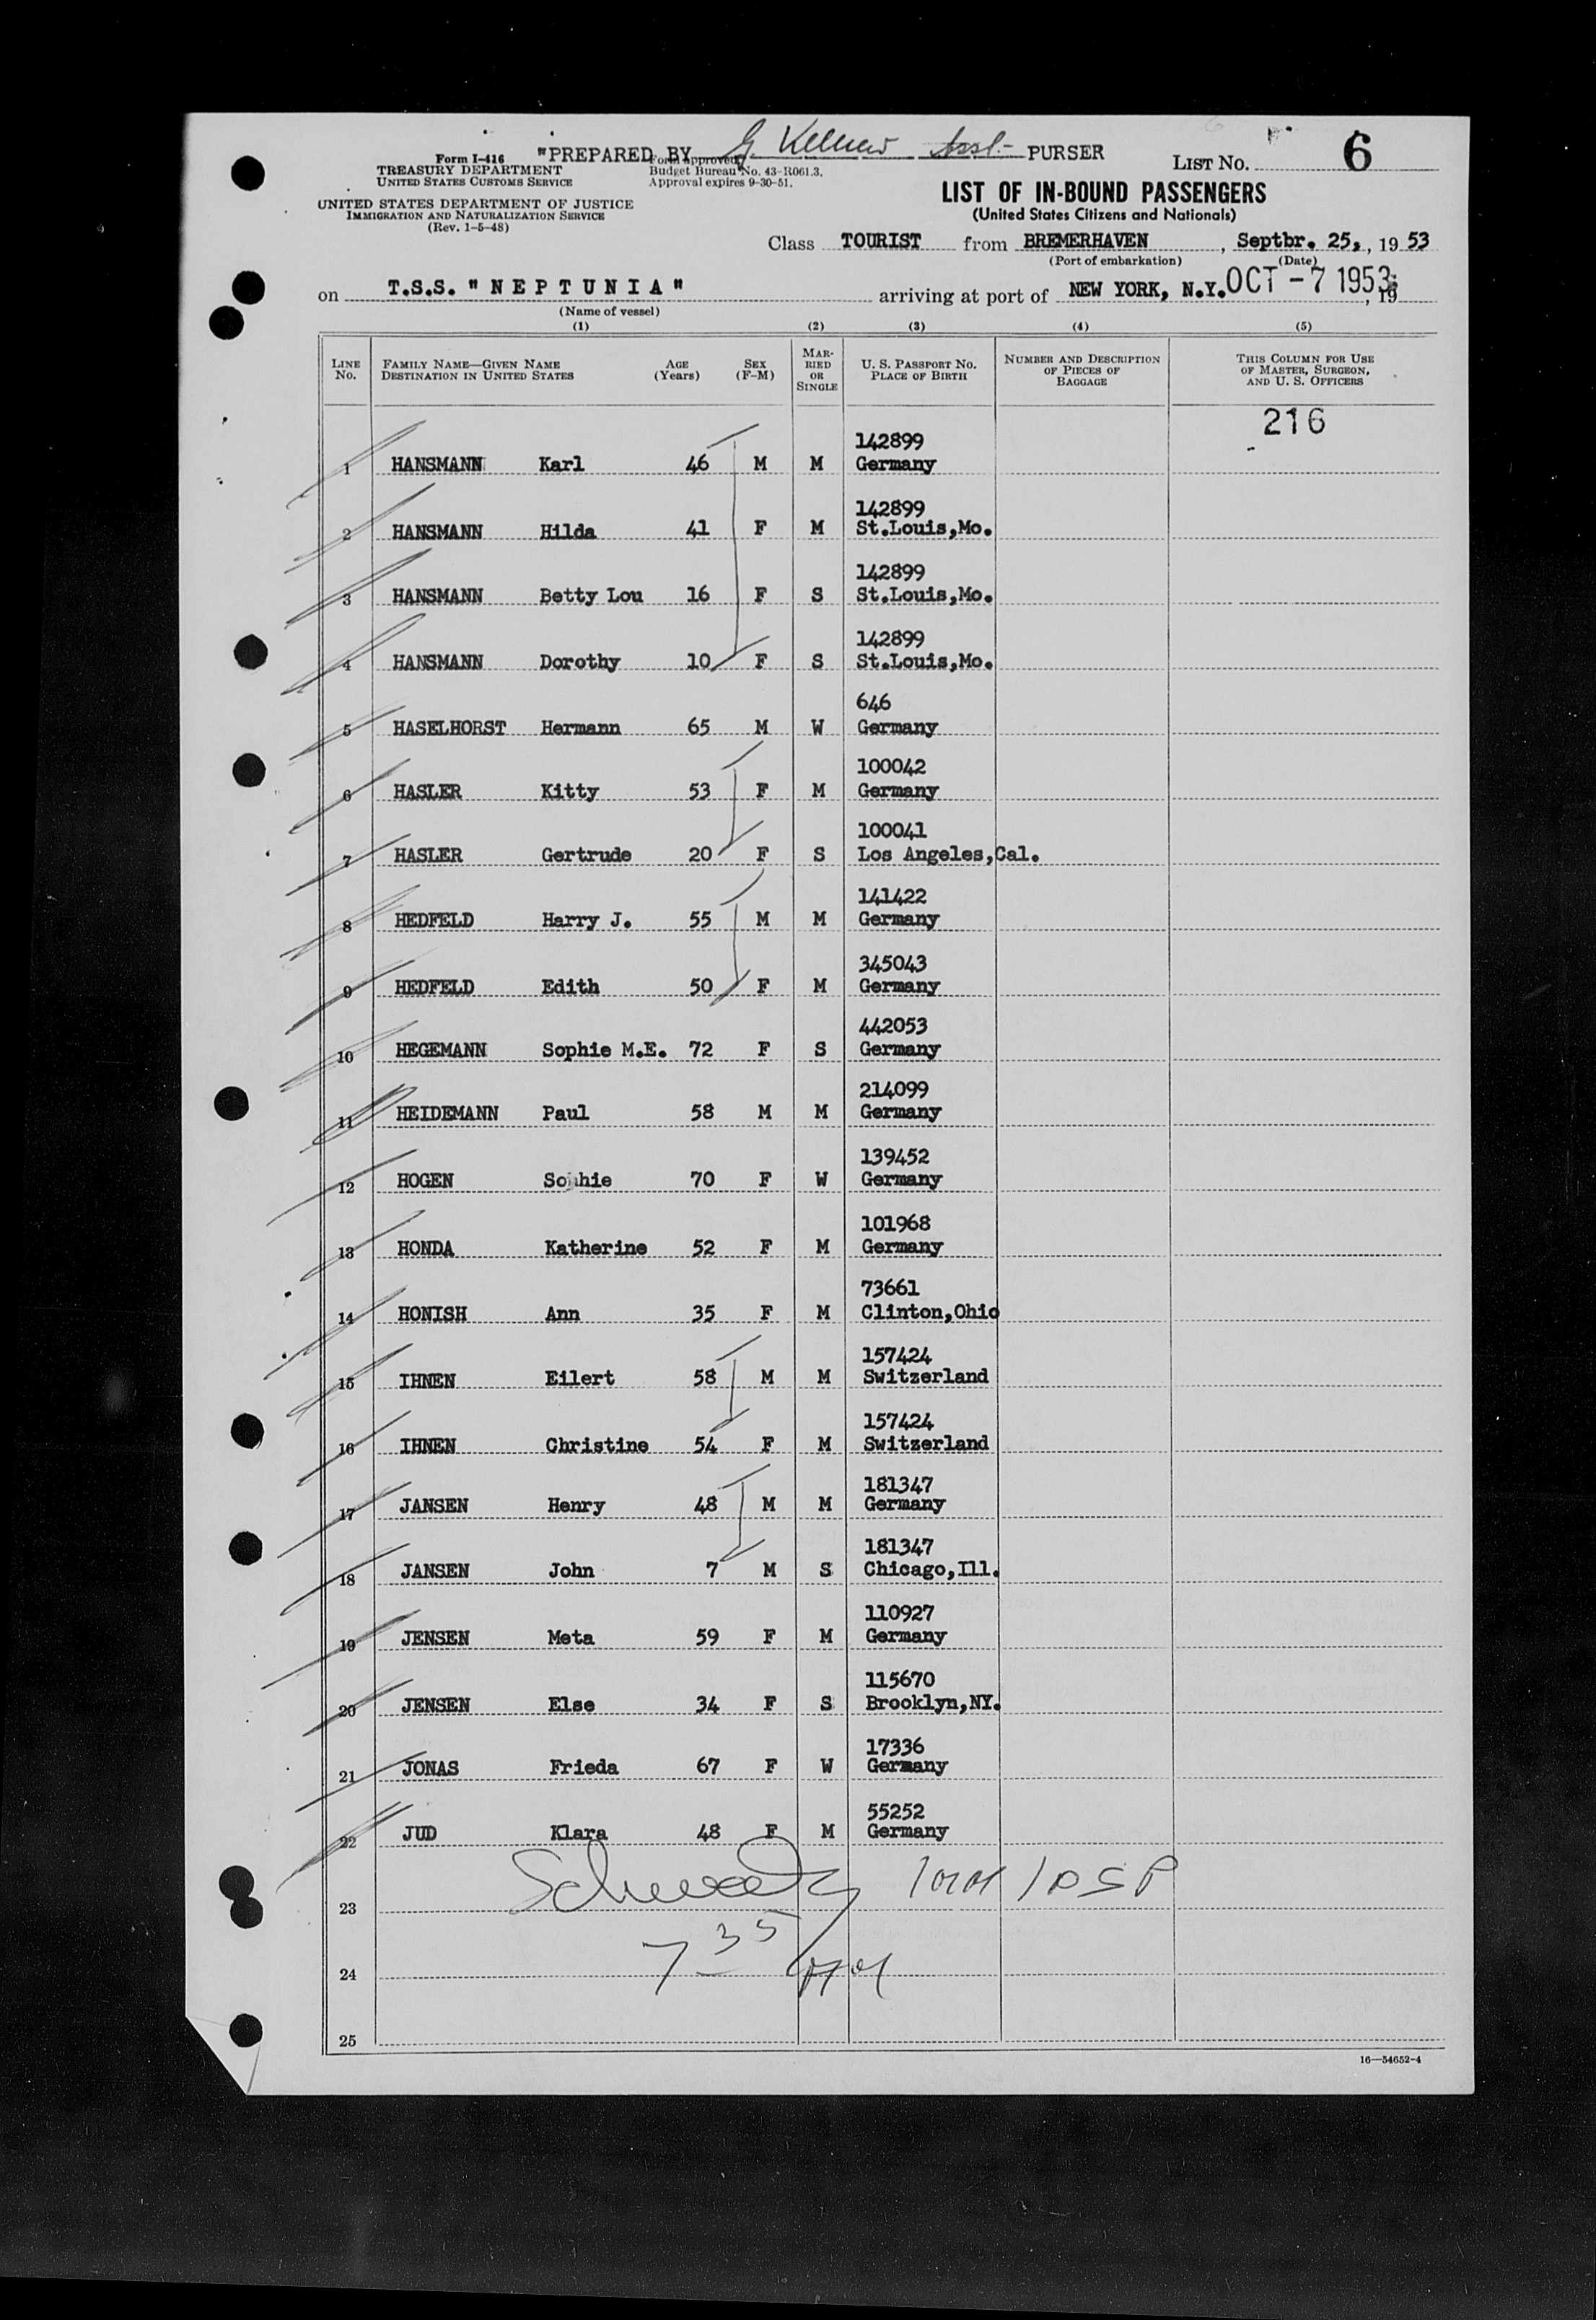 "PREPARED BY G. Kellner Asst- PURSER
Form I-416
TREASURY DEPARTMENT
UNITED STATES CUSTOMS SERVICE
Form approved.
Budget Bureau No. 43-R061.3.
Approval expires 9-30-51.
LIST NO. 6
UNITED STATES DEPARTMENT OF JUSTICE
IMMIGRATION AND NATURALIZATION SERVICE
(Rev. 1-5-48)
LIST OF IN-BOUND PASSENGERS
(United States Citizens and Nationals)
Class TOURIST from BREMERHAVEN, Septbr. 25, 1953
(Port of embarkation) (Date)
on T.S.S. "NEPTUNIA" arriving at port of NEW YORK, N.Y. OCT -7 1953, 19
(Name of vessel)
(1) (2) (3) (4) (5)
LINE NO. FAMILY NAME—GIVEN NAME DESTINATION IN UNITED STATES AGE (Years) SEX (F-M) MARRIED OR SINGLE U. S. PASSPORT NO. PLACE OF BIRTH NUMBER AND DESCRIPTION OF PIECES OF BAGGAGE THIS COLUMN FOR USE OF MASTER, SURGEON, AND U. S. OFFICERS
216
142899
1 HANSMANN Karl 46 M M Germany
142899
2 HANSMANN Hilda 41 F M St.Louis,Mo.
142899
3 HANSMANN Betty Lou 16 F S St.Louis,Mo.
142899
4 HANSMANN Dorothy 10 F S St.Louis,Mo.
646
5 HASELHORST Hermann 65 M W Germany
100042
6 HASLER Kitty 53 F M Germany
100041
7 HASLER Gertrude 20 F S Los Angeles,Cal.
141422
8 HEDFELD Harry J. 55 M M Germany
345043
9 HEDFELD Edith 50 F M Germany
442053
10 HEGEMANN Sophie M.E. 72 F S Germany
214099
11 HEIDEMANN Paul 58 M M Germany
139452
12 HOGEN Sophie 70 F W Germany
101968
13 HONDA Katherine 52 F M Germany
73661
14 HONISH Ann 35 F M Clinton,Ohio
157424
15 IHNEN Eilert 58 M M Switzerland
157424
16 IHNEN Christine 54 F M Switzerland
181347
17 JANSEN Henry 48 M M Germany
181347
18 JANSEN John 7 M S Chicago,Ill.
110927
19 JENSEN Meta 59 F M Germany
115670
20 JENSEN Else 34 F S Brooklyn,NY.
17336
21 JONAS Frieda 67 F W Germany
55252
22 JUD Klara 48 F M Germany
23
7 35
24
25
16—54652-4